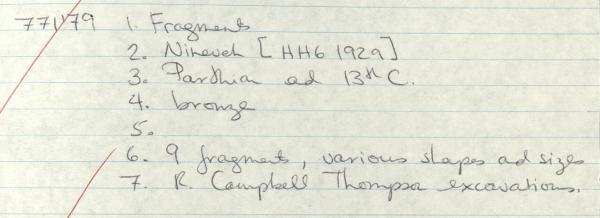 771'79 1. Fragments
2. Nineveh [HH6 1929]
3. Parthian ad 13th C.
4. bronze
5.
6. 9 fragments, various shapes ad sizes
7. R. Campbell Thompson excavations.